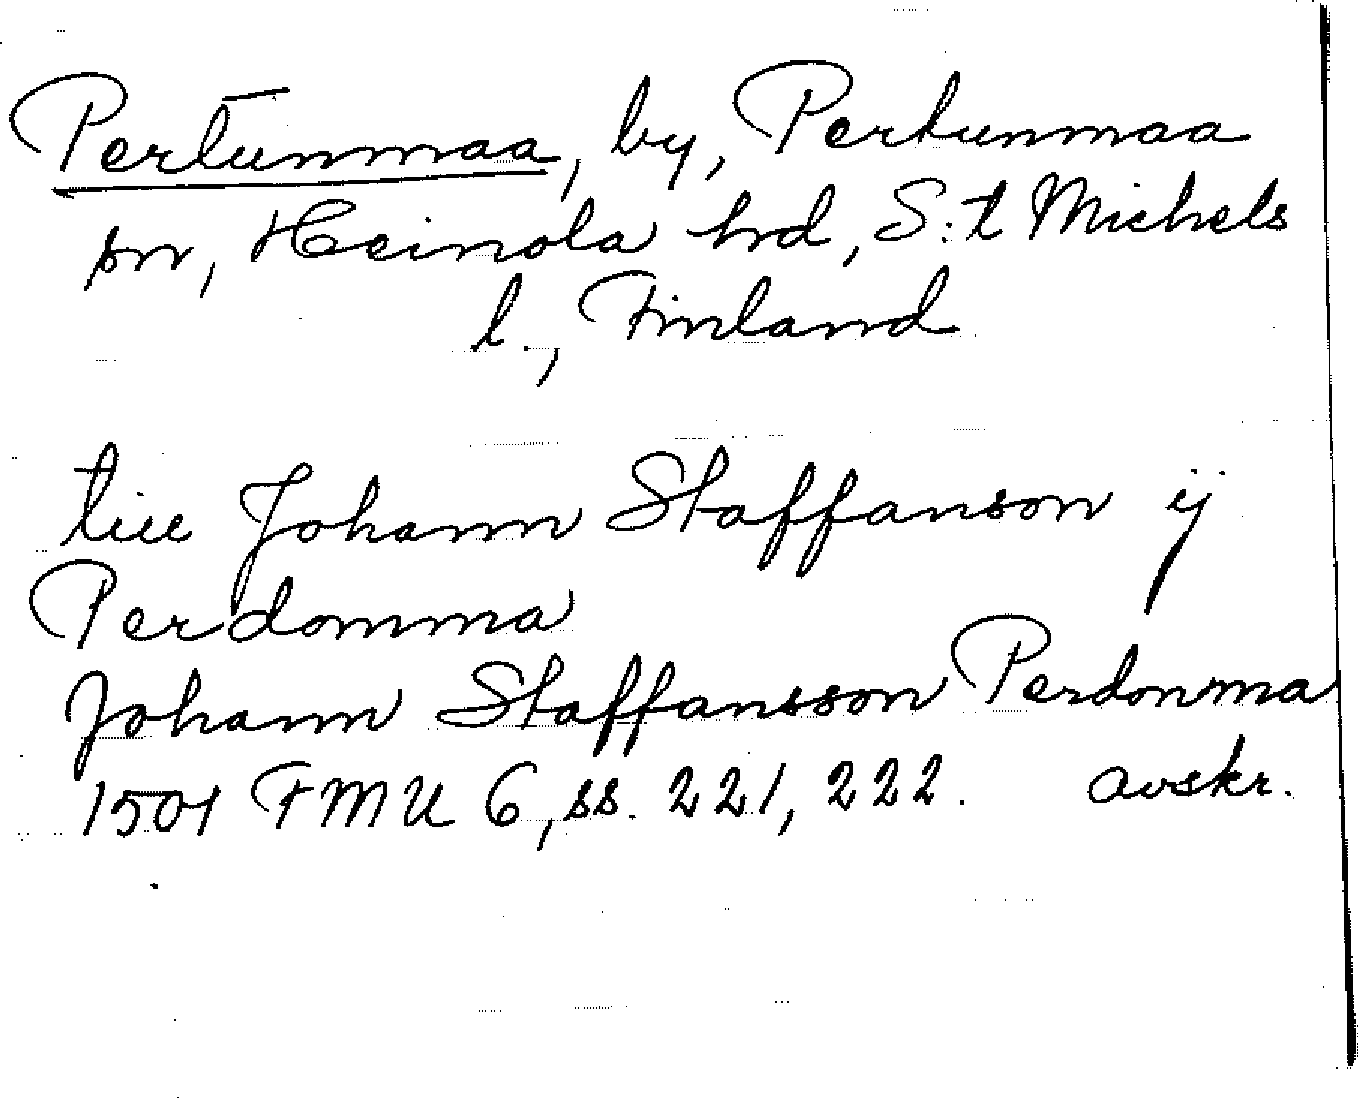 Pertunmaa, by, Pertunmaa
sn, Heinola hrd, S:t Michels
l., Finland
till Johann Staffanson ij
Perdomma
Johann Staffansson Perdonma
1501 FMU 6, ss. 221, 222. avskr.